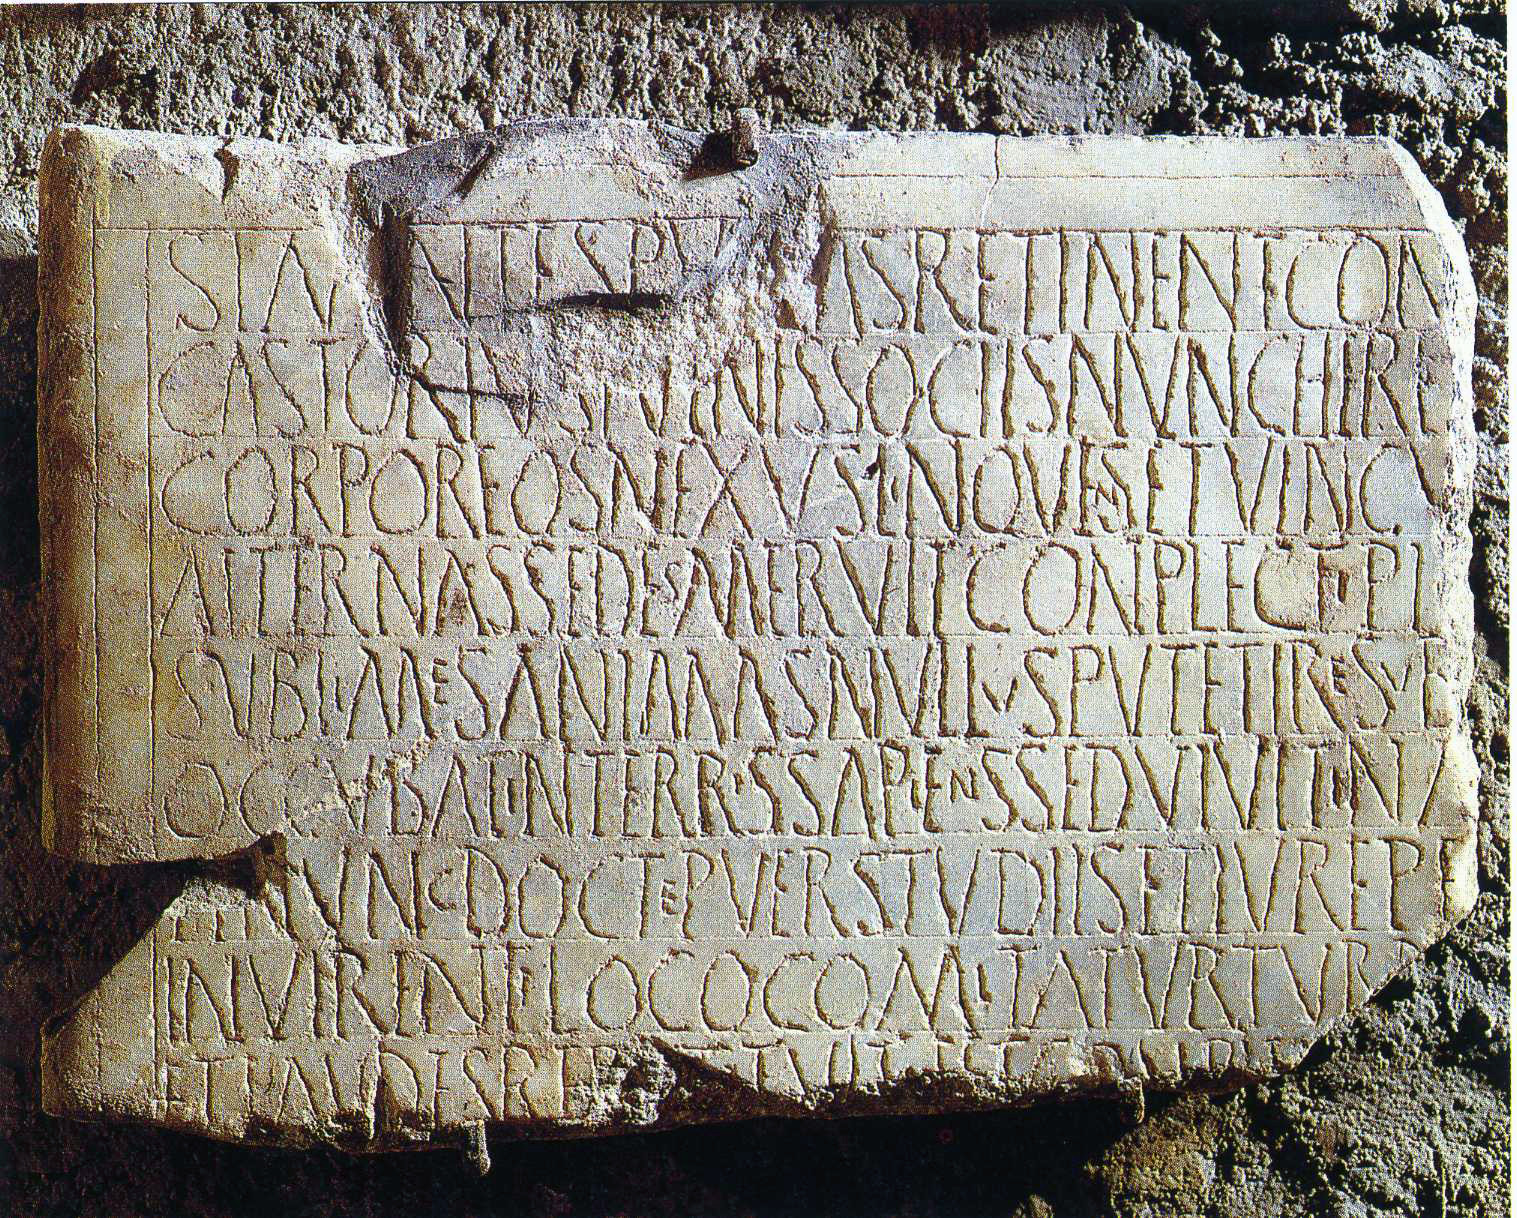 STAN NTESPV ASRETINENTCON
CASTORIVS NISSOCIISNVNCHIRE
CORPOREOSNEXVSINQVENSETVINCV
ALTERNASSEDESMERVITCONPLECTIPL
SVBLIMESANIMAMSNVLLVSPVTETIRESVB
OCCVBATINTERRISSAPIENSSEDVIVITINA
NVNCDOCTEPVERSTVDIISETIVREPE
INVIRENTLOCOCOMITATVRTVRB
ETLAVDESREF